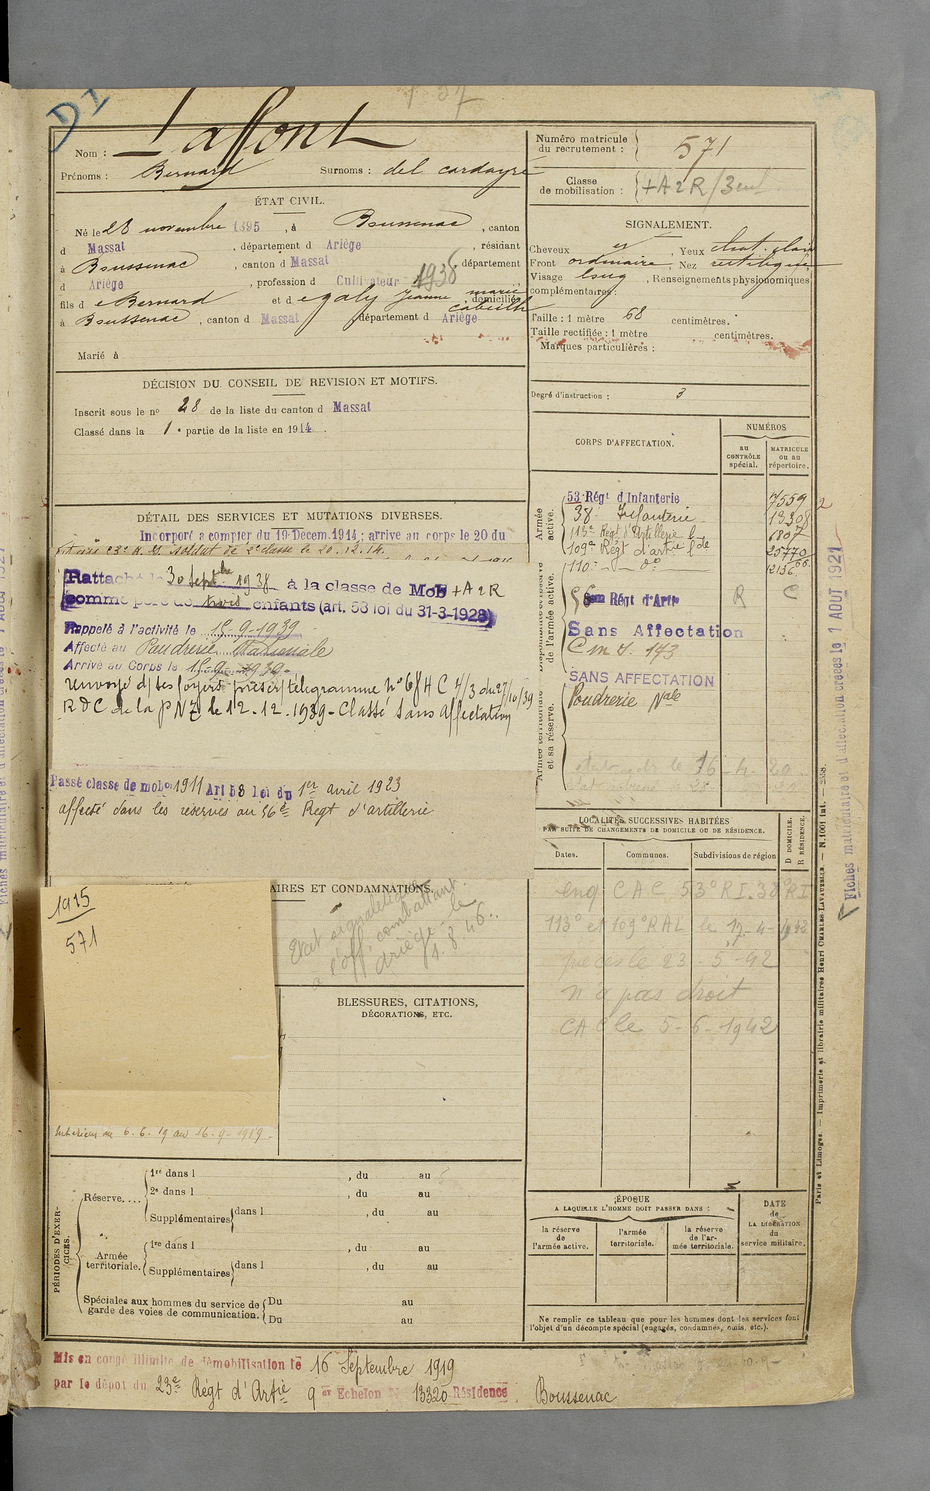 D1
Laffont
Nom :
Prénoms : Bernard Surnoms : del cordayre
ÉTAT CIVIL.
Né le 28 novembre 1895, à Boussenac, canton
d Massat, département d Ariège, résidant
à Boussenac, canton d Massat, département
d Ariège, profession d Cultivateur 1938
fils d e Bernard et d egaly Jeanne marie, domiciliés
à Boussenac, canton d Massat département d Ariège
Marié à
DÉCISION DU CONSEIL DE REVISION ET MOTIFS.
Inscrit sous le nº 28 de la liste du canton d Massat
Classé dans la 1e partie de la liste en 1914.
DÉTAIL DES SERVICES ET MUTATIONS DIVERSES.
Incorporé à compter du 19 Décem. 1914; arrivé au corps le 20 du
soldat de 2e classe le 20.12.14.
Rattaché le 30 Septbre 1938 à la classe de Mob + A 2 R
comme père de trois enfants (art. 58 loi du 31-3-1928)
Rappelé à l'activité le 15-9-1939
Affecté au Poudrerie Nationale
Arrivé au Corps le 15-9-1939-
renvoyé d/ ses foyers prescr/ télégramme Nº 684 C 4/3 du 27/10/39
R D C de la P NZ le 12-12-1939 - Classé Sans affectation
Passé classe de mob. 1911 Art 58 loi du 1er avril 1923
affecté dans les réserves au 56e Régt d'artillerie
AIRES ET CONDAMNATIONS.
1915
571
Etat signalétique
à l'off. combattant
Ariège le
1.8.46.
BLESSURES, CITATIONS,
DÉCORATIONS, ETC.
Intérieur du 6.6.19 au 16-9-1919-
PÉRIODES D'EXERCICES.
Réserve....
1re dans l , du au
2e dans l , du au
Supplémentaires dans l , du au
Armée territoriale.
1re dans l , du au
Supplémentaires dans l , du au
Spéciales aux hommes du service de garde des voies de communication.
Du au
Du au
Mis en congé illimité de démobilisation le 16 Septembre 1919
par le dépôt du 23e Régt d'Artie 9e Echelon Nº 13320 Résidence Boussenac
Numéro matricule
du recrutement : 571
Classe
de mobilisation : + A 2 R / 3 enf
SIGNALEMENT.
Cheveux , Yeux chat. clair
Front ordinaire, Nez rectiligne
Visage long, Renseignements physionomiques
complémentaires :
Taille : 1 mètre 68 centimètres.
Taille rectifiée : 1 mètre centimètres.
Marques particulières :
Degré d'instruction : 3
CORPS D'AFFECTATION.
NUMÉROS
au
CONTRÔLE
spécial.
MATRICULE
ou au
répertoire.
Armée active.
53 Régt d'Infanterie 7559
38 Infanterie 13308
113e Régt d'Artillerie L 6807
109e Régt d'artie Lde 25770
110 - dº - 12136
Disponibilité et réserve de l'armée active.
56em Régt d'Artie R C
Sans Affectation
C m d. 173
Armée territoriale et sa réserve.
SANS AFFECTATION
Poudrerie Nale
le 16-4-20
LOCALITÉS SUCCESSIVES HABITÉES
PAR SUITE DE CHANGEMENTS DE DOMICILE OU DE RÉSIDENCE.
D DOMICILE.
R RÉSIDENCE.
Dates. Communes. Subdivisions de région
enq CAC 53º RI. 38º RI
113º et 109º RAL le 17-4-1942
pièces le 23-5-42
n'a pas droit
CAC le 5-6-1942
ÉPOQUE
A LAQUELLE L'HOMME DOIT PASSER DANS :
la réserve
de
l'armée active.
l'armée
territoriale.
la réserve
de l'armée territoriale.
DATE
de
LA LIBÉRATION
du
service militaire.
Ne remplir ce tableau que pour les hommes dont les services font
l'objet d'un décompte spécial (engagés, condamnés, omis, etc.).
Paris et Limoges. — Imprimerie et librairie militaires Henri CHARLES-LAVAUZELLE. — N. 1001 int. — 258.
Fiches matriculaire et d'affectation créées le 1 AOUT 1921